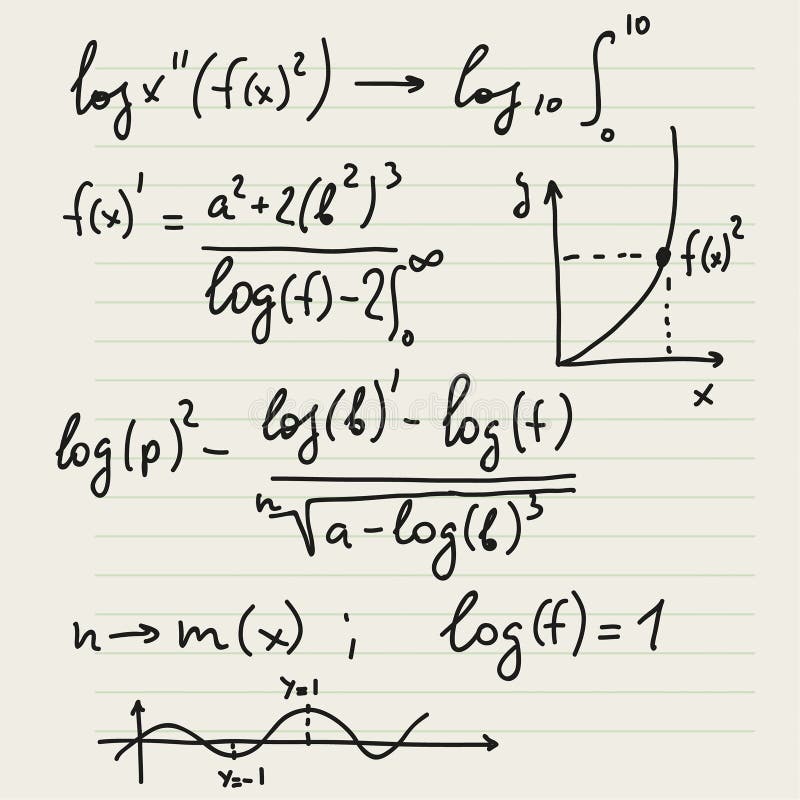 log x''(f(x)²) → log₁₀ ∫₀¹⁰
f(x)' = (a²+2(b²)³)/(log(f)-2∫₀^∞)
y
f(x)²
x
log(p)² - (log(b)' - log(f))/(ⁿ√(a-log(b)³))
n → m(x) ; log(f) = 1
y=1
y=-1